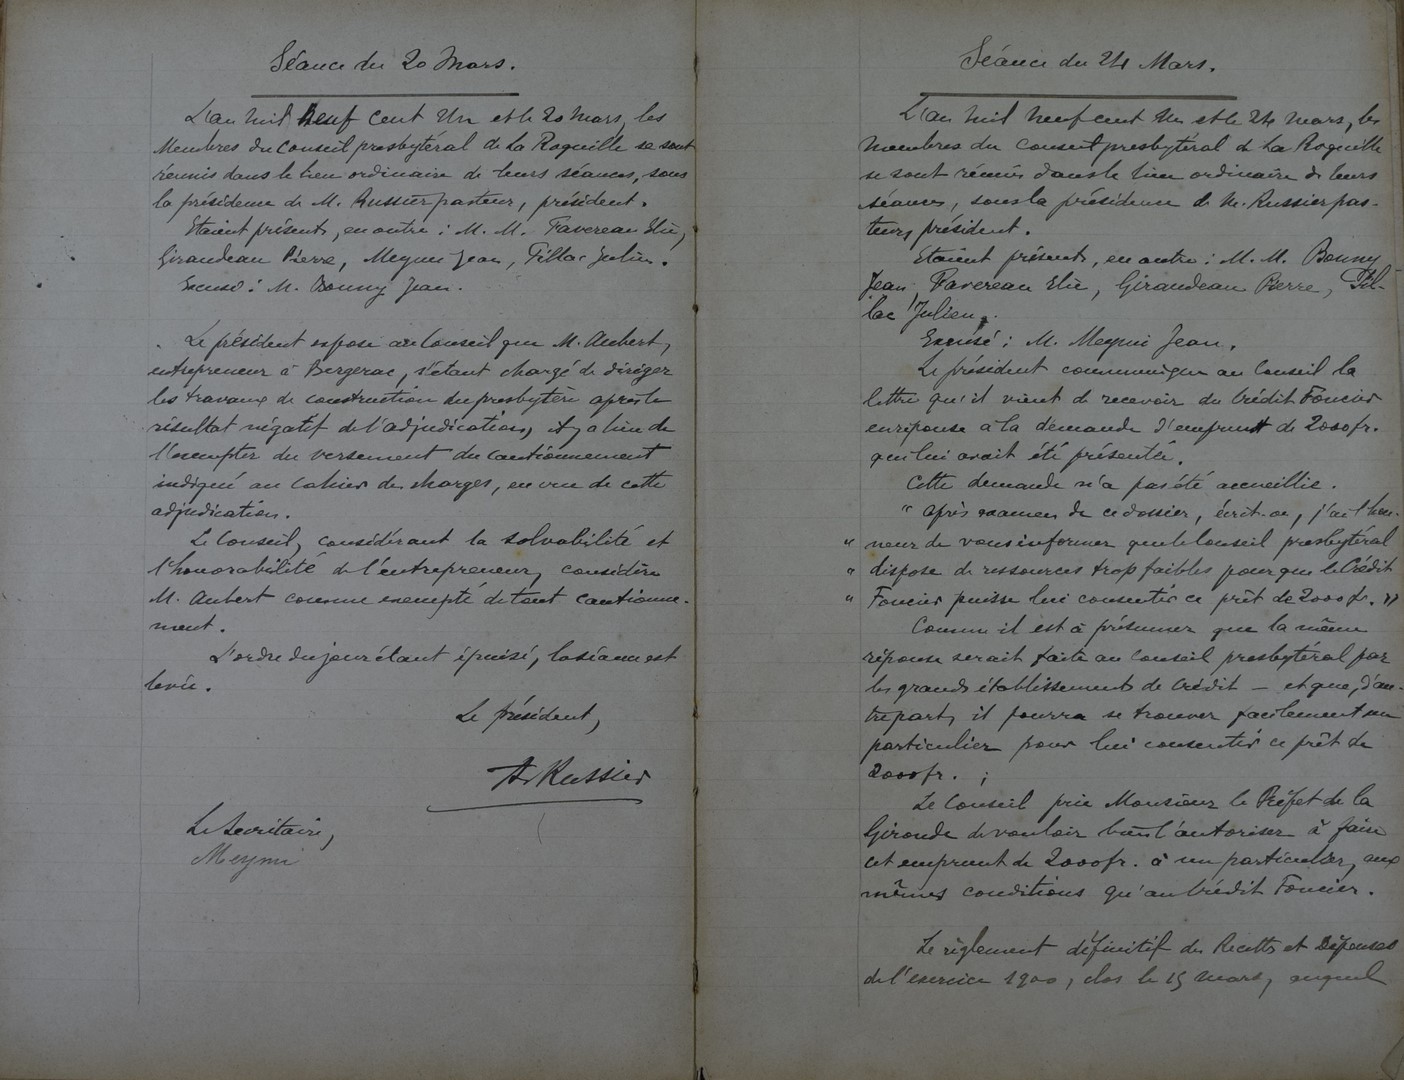 Séance du 20 Mars.
L'an mil neuf cent un et le 20 mars, les
Membres du Conseil presbytéral de La Roquille se sont
réunis dans le lieu ordinaire de leurs séances, sous
la présidence de M. Russier pasteur, président.
Etaient présents, en outre : M. M. Favereau Elie,
Giraudeau Pierre, Meymi Jean, Tillac Julien.
Excusé : M. Bonny Jean.
Le président expose au Conseil que M. Aubert,
entrepreneur à Bergerac, s'étant chargé de diriger
les travaux de construction du presbytère après le
résultat négatif de l'adjudication, il y a lieu de
l'exempter du versement du cautionnement
indiqué au cahier des charges, en vue de cette
adjudication.
Le Conseil, considérant la solvabilité et
l'honorabilité de l'entrepreneur, considère
M. Aubert comme exempté de tout cautionne-
ment.
L'ordre du jour étant épuisé, la séance est
levée.
Le président,
A. Russier
Le Secrétaire,
Meymi
Séance du 24 Mars.
L'an mil neuf cent un et le 24 mars, les
membres du conseil presbytéral de La Roquille
se sont réunis dans le lieu ordinaire de leurs
séances, sous la présidence de M. Russier pas-
teur, président.
Etaient présents, en outre : M. M. Bonny
Jean, Favereau Elie, Giraudeau Pierre, Til-
lac Julien.
Excusé : M. Meymi Jean.
Le président communique au Conseil la
lettre qu'il vient de recevoir du Crédit Foncier
en réponse à la demande d'emprunt de 2000 fr.
qui lui avait été présentée.
Cette demande n'a pas été accueillie.
" Après examen de ce dossier, écrit-on, j'ai l'hon-
" neur de vous informer que le Conseil presbytéral
" dispose de ressources trop faibles pour que le Crédit
" Foncier puisse lui consentir ce prêt de 2000 fr. "
Comme il est à présumer que la même
réponse serait faite au conseil presbytéral par
les grands établissements de Crédit — et que, d'au-
tre part, il pourra se trouver facilement un
particulier pour lui consentir ce prêt de
2000 fr. ;
Le Conseil prie Monsieur le Préfet de la
Gironde de vouloir bien l'autoriser à faire
cet emprunt de 2000 fr. à un particulier, aux
mêmes conditions qu'au Crédit Foncier.
Le règlement définitif des Recettes et Dépenses
de l'exercice 1900, clos le 15 mars, auquel